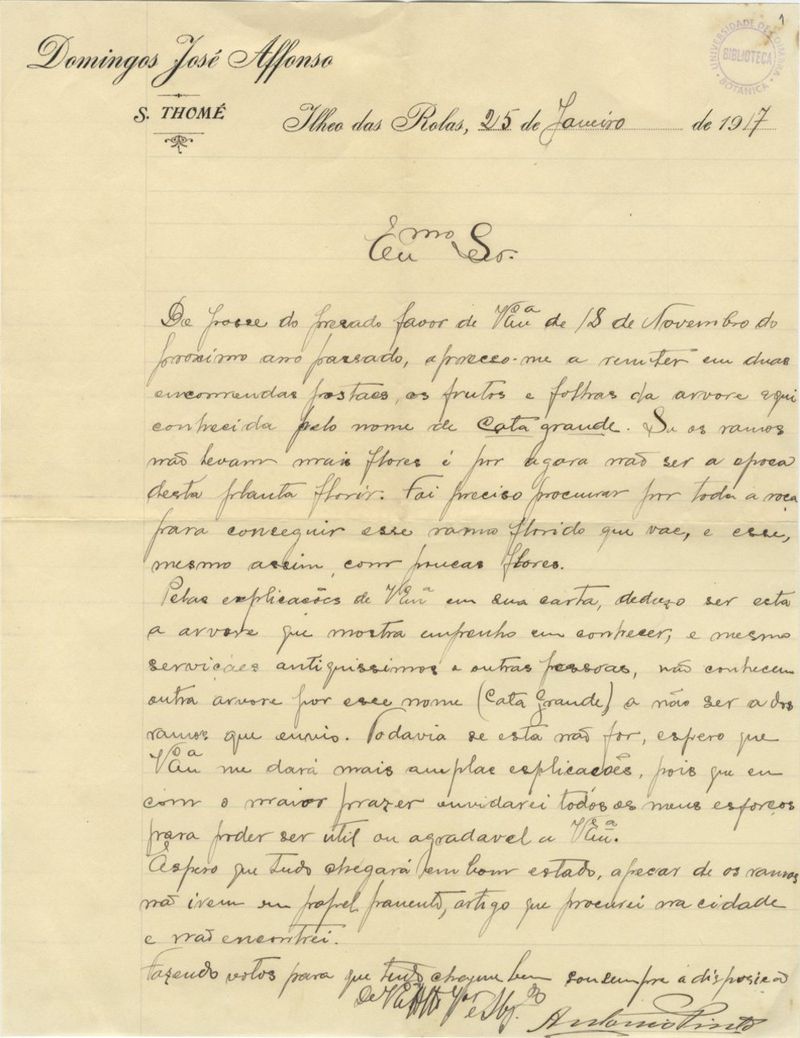 1
UNIVERSIDADE DE COIMBRA
BIBLIOTECA
BOTÂNICA
Domingos José Affonso
S. THOMÉ
Ilheo das Rolas, 25 de Janeiro de 1917
Exmo Snr.
De posse do presado favor de V. Exa de 18 de Novembro do
proximo ano passado, apresso-me a remeter em duas
encomendas postaes, os frutos e folhas da arvore aqui
conhecida pelo nome de Cata grande. Se os ramos
não levam mais flores é por agora não ser a epoca
desta planta florir. Foi preciso procurar por toda a roça
para conseguir esse ramo florido que vae, e esse,
mesmo assim, com poucas flores.
Pelas explicações de V. Exa em sua carta, deduzo ser esta
a arvore que mostra empenho em conhecer, e mesmo
serviçaes antiquissimos e outras pessoas, não conhecem
outra arvore por esse nome (Cata Grande) a não ser a dos
ramos que envio. Todavia se esta não for, espero que
V. Exa me dará mais amplas explicações, pois que eu
com o maior prazer envidarei todos os meus esforços
para poder ser util ou agradavel a V. Exa.
Espero que tudo chegará em bom estado, apezar de os ramos
não irem em papel pardento, artigo que procurei na cidade
e não encontrei.
Fazendo votos para que tudo chegue bem sou sempre á disposição
De V. Exa
Antonio Pinto